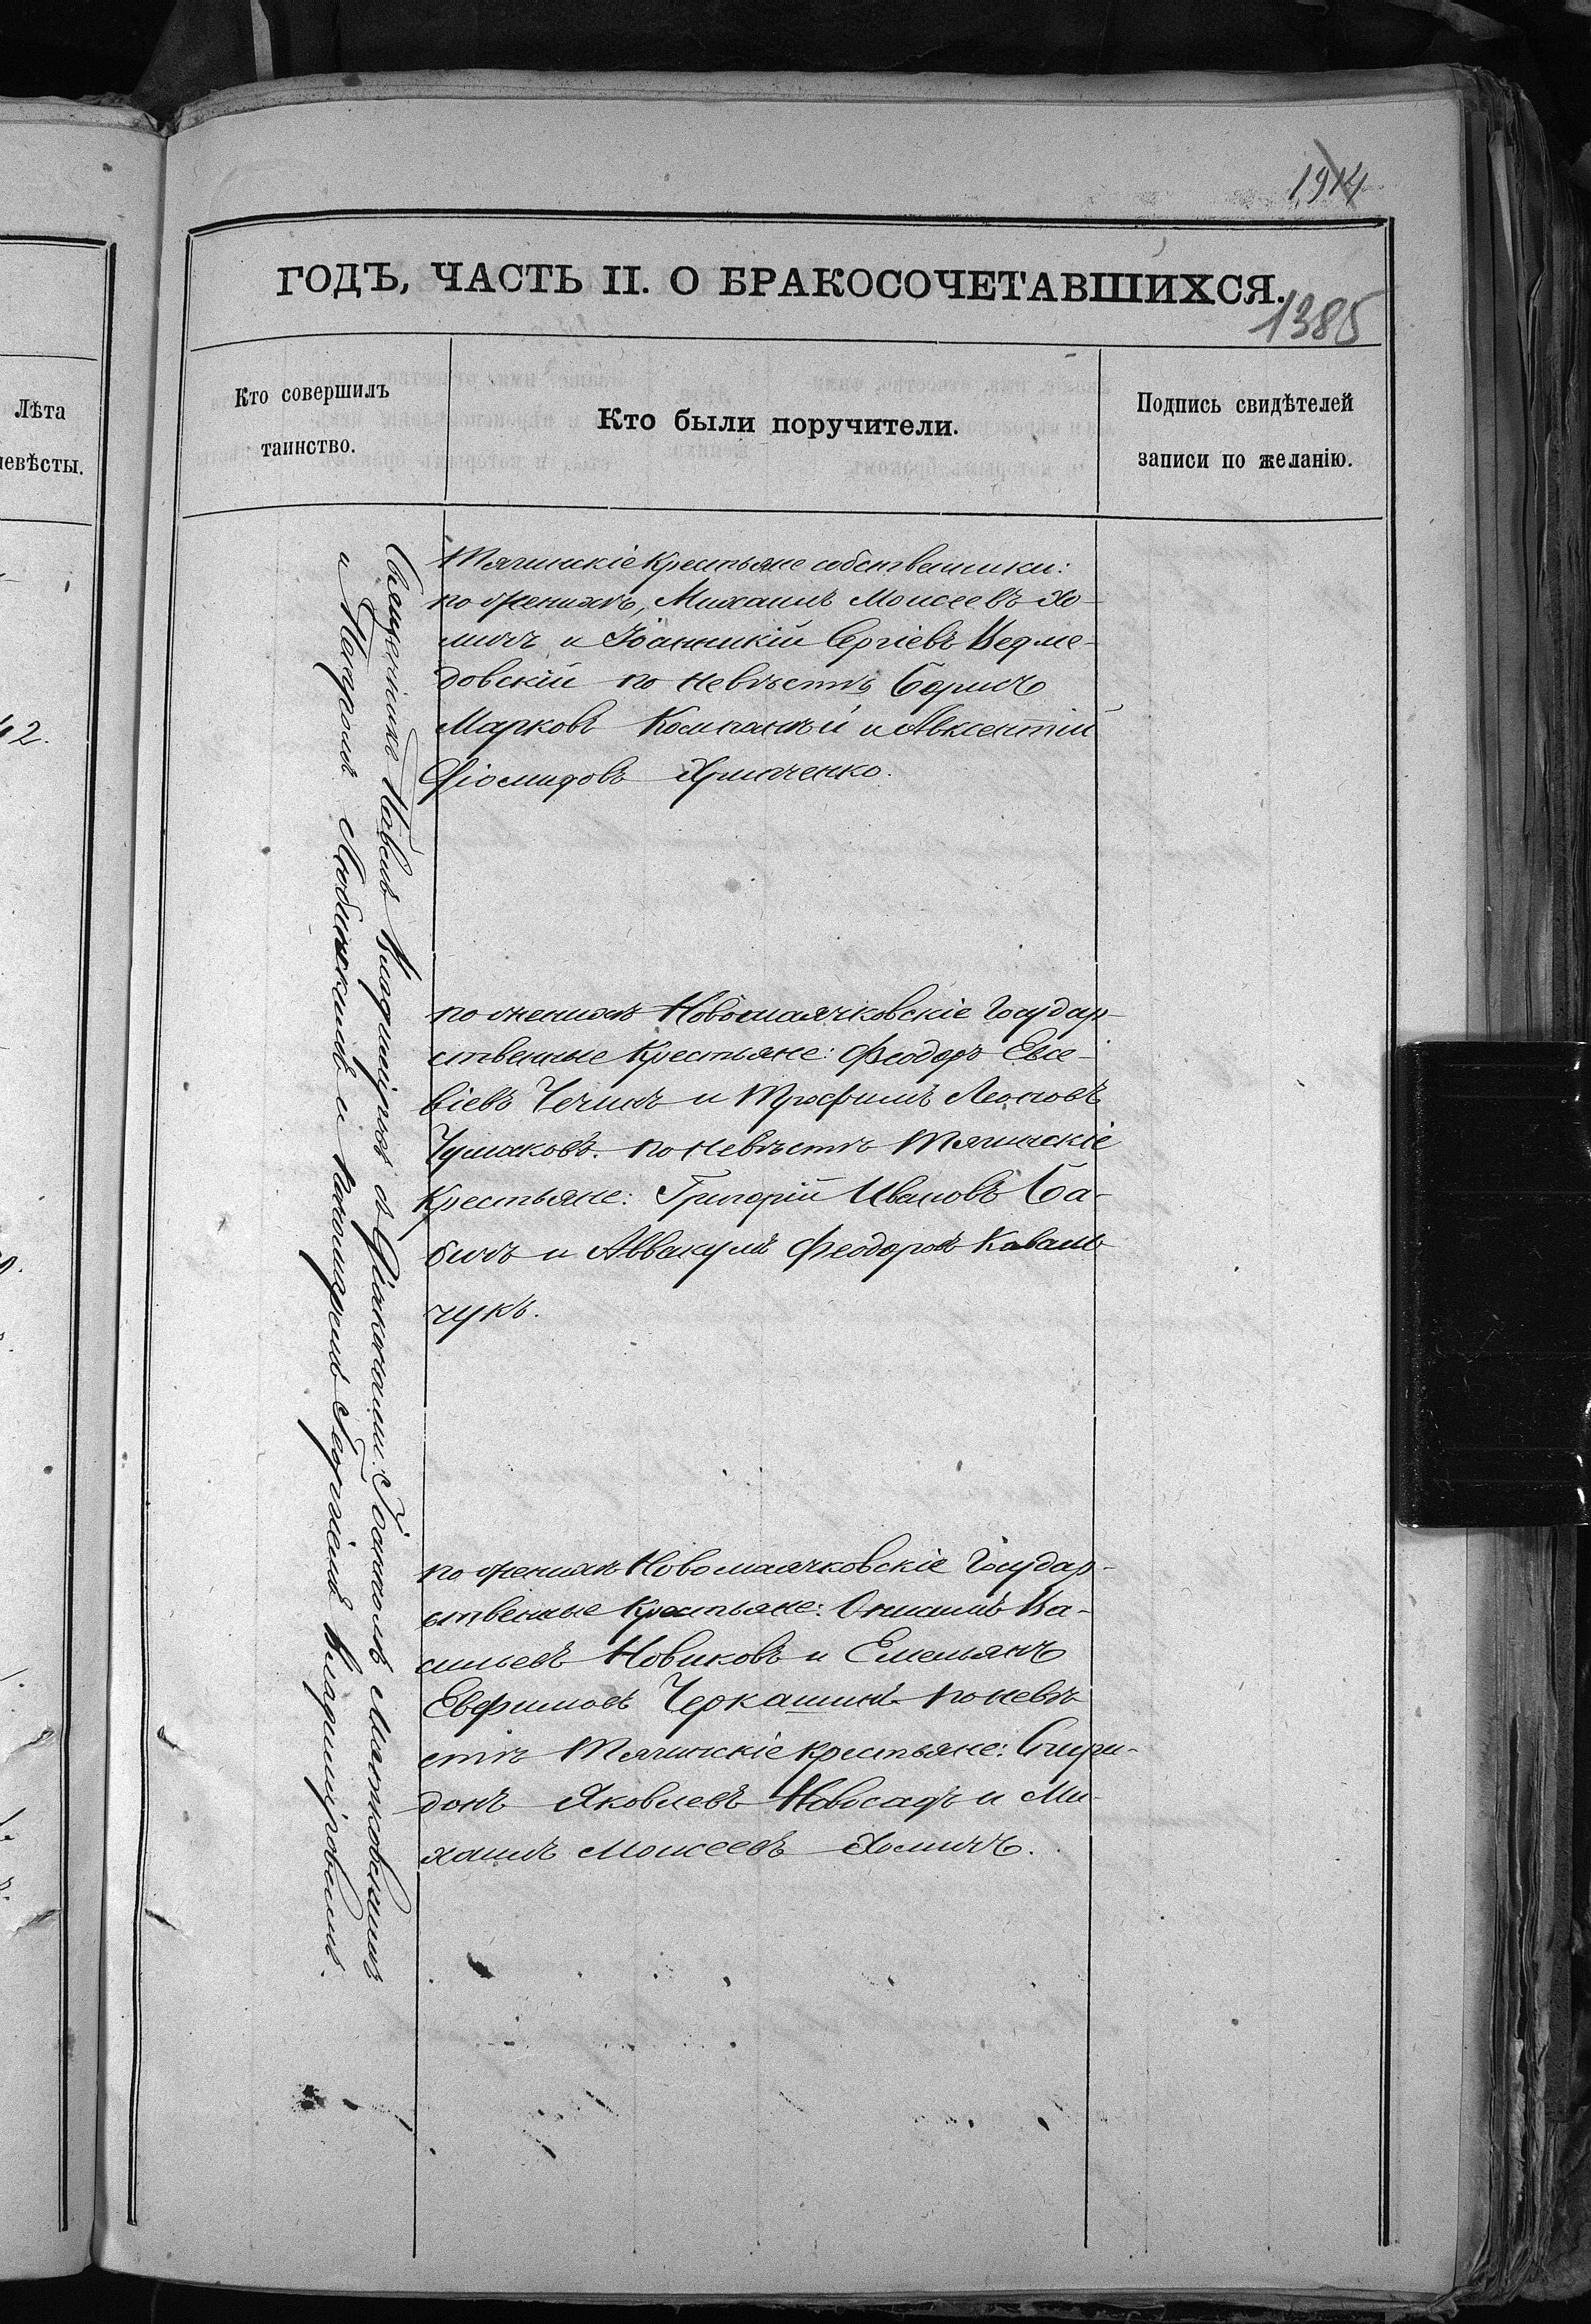 1914
ГОДЪ, ЧАСТЬ II. О БРАКОСОЧЕТАВШИХСЯ.
1385
Лѣта
невѣсты.
Кто совершилъ
таинство.
Кто были поручители.
Подпись свидѣтелей
записи по желанію.
42.
Священникъ Павелъ Владиміровъ съ Діаконами: Іоанномъ
и Петромъ Любинскимъ и Пономаремъ Георгіемъ Владиміровымъ.
Тягинскіе Крестьяне собственники:
по женихѣ, Михаилъ Моисеевъ Хо-
мичъ и Іоанникій Сергіевъ Ведме-
довскій по невѣстѣ Борисъ
Марковъ Компанѣй и Авксентій
Діомидовъ Христенко.
по женихѣ Новомаячковскіе Государ-
ственные Крестьяне: Феодоръ Евсе-
віевъ Чечинъ и Трофимъ Леоновъ
Чумаковъ. по невѣстѣ Тягинскіе
Крестьяне: Григорій Ивановъ Ба-
бичъ и Аввакумъ Феодоровъ Каваль-
чукъ.
по женихѣ Новомаячковскіе Государ-
ственные Крестьяне: Онисимъ Ва-
сильевъ Новиковъ и Емельянъ
Евфимовъ Черкашинъ по невѣ-
стѣ Тягинскіе крестьяне: Спири-
донъ Яковлевъ Новосадъ и Ми-
хаилъ Моисеевъ Хомичъ.